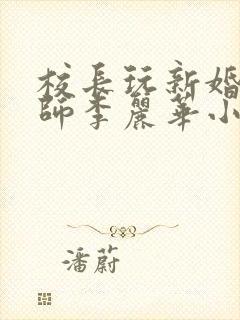 校長玩新婚
師李麗華小
潘蔚